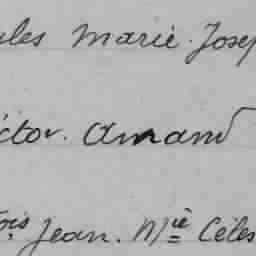 ules Marie. Josep
ctor. Amand
ois Jean. Mie Céles